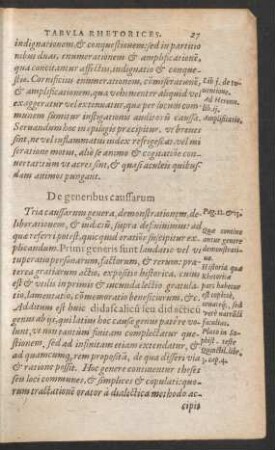 TABVLA RHETORICES. 27
indignationem, & conquestionem: sed in partitio
nibus duas, enumerationem & amplificationẽ,
qua concitantur affectus, indignatio & conque-
stio. Cornificius enumerationem, cõmiserationẽ,
& amplificationem, qua vehementer aliquid vel
exaggeratur vel extenuatur, qua per locum com-
munem sumitur instigationis auditorũ caussa.
Seruandum hoc in epilogis præcipitur, vt breues
sint, ne vel inflammatus index refrigescat vel mi
seratione motus, alio se animo & cogitatiõe con-
uertat: tũ vt acres sint, & quasi aculeis quibus-
dam animos pungant.
De generibus caussarum
Tria caussarum genera, demonstrationem, de-
liberationem, & iudiciũ, supra definiuimus: ad
quæ referri potest, quicquid oratiõe suscipitur ex-
plicandum. Primi generis sunt laudatio vel vi-
tuperatio personarum, factorum, & rerum: præ-
terea gratiarum actio, expositio historica, cuius
est & vtilis in primis & iucunda lectio: gratula-
tio, lamentatio, cõmemoratio beneficiorum, & c.
Additum est huic didascalicũ seu didacticũ
genus ab ijs, qui latius hoc caussæ genus patere vo-
lunt, vt non tantum finitam complectatur quæ-
stionem, sed ad infinitam etiam extendatur, &
ad quamcunque rem propositã, de qua disseri via
& ratione possit. Hoc genere continentur theses
seu loci communes, & simplices & copulati: quo-
rum tractationẽ orator à dialectica methodo ac-
cipit
Lib j. de in-
uentione.
Ad Heren.
lib. ij.
Amplificatio.
Pag. 12. & 13.
Quæ contine
antur genere
demonstratio
nis.
Historia quæ